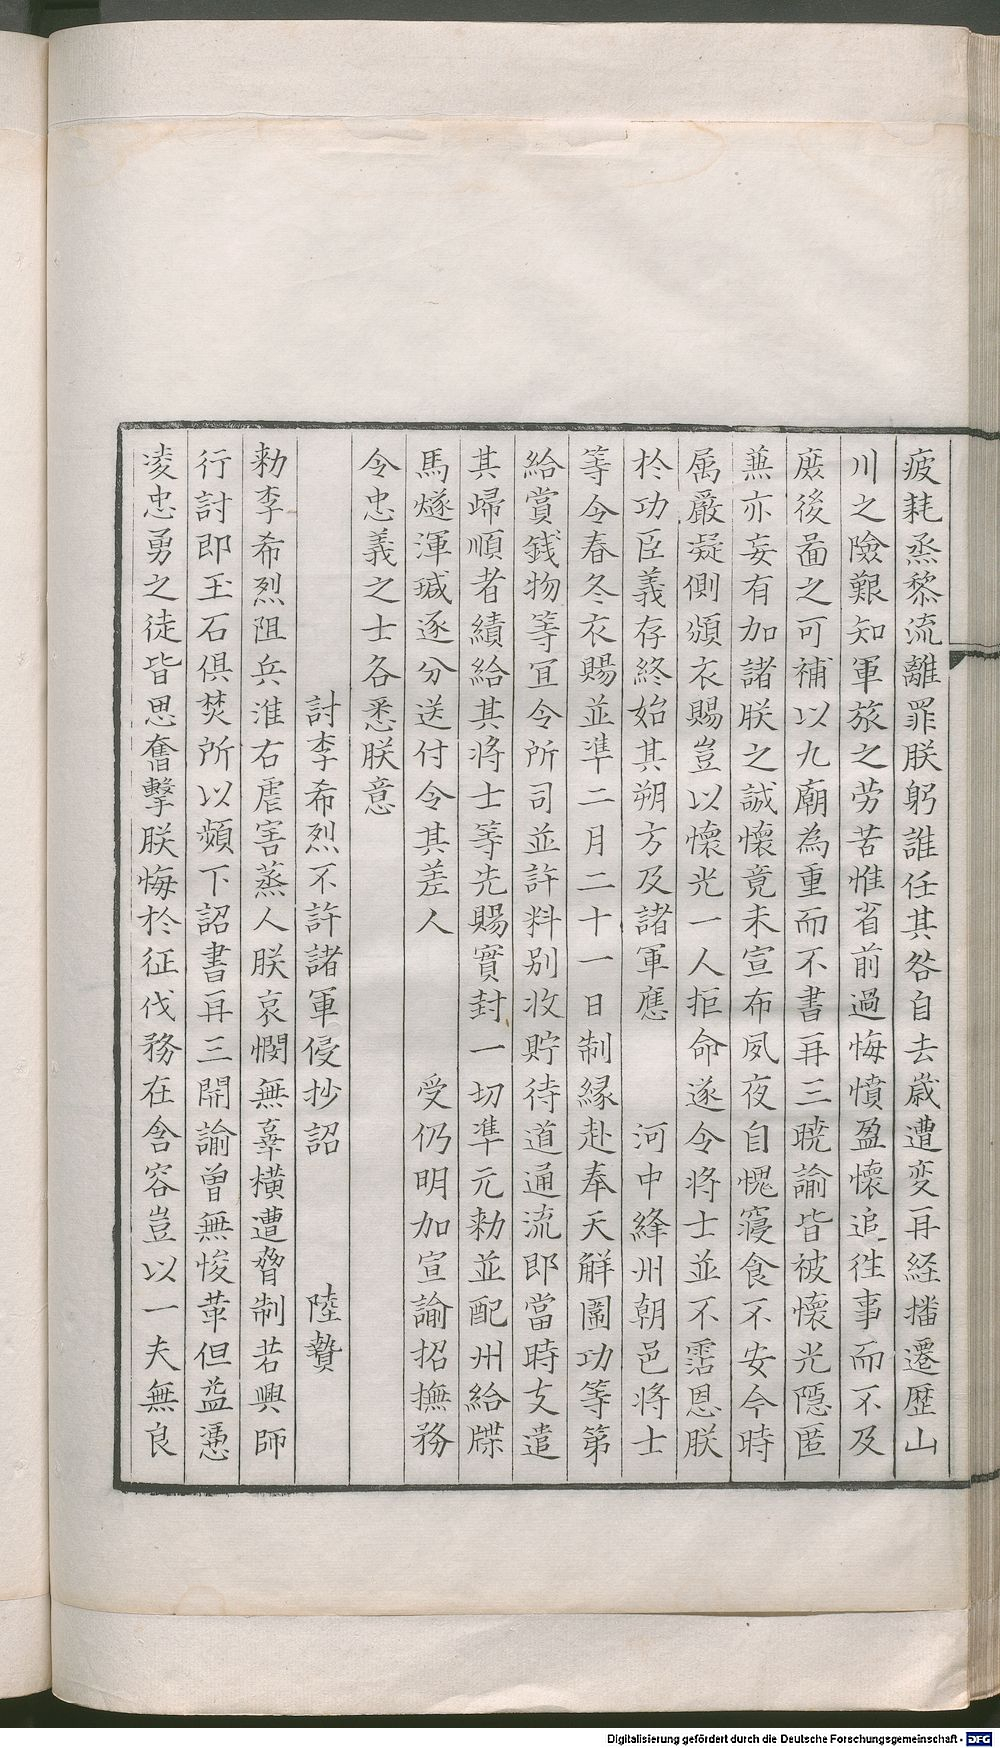 疲耗烝黎流離罪朕躬誰任其咎自去歳遭变再経播遷歴山
川之險艱知軍旅之劳苦惟省前過悔憤盈懷追徃事而不及
庻後啚之可補以九廟為重而不書再三曉諭皆被懷光隠匿
蕪亦妄有加諸朕之誠懷竟未宣布夙夜自愧寢食不安今時
属嚴凝側頒衣賜豈以懷光一人拒命遂令将士並不霑恩朕
於功臣義存終始其朔方及諸軍應　河中絳州朝邑将士
等令春冬衣賜並準二月二十一日制縁赴奉天觧圍功等第
給賞銭物等冝令所司並許料別收貯待道通流即當時支遣
其歸順者續給其将士等先賜實封一切準元勑並配州給牒
馬燧渾瑊逐分送付令其差人　受仍明加宣諭招撫務
令忠義之士各悉朕意
討李希烈不許諸軍侵抄詔　陸贄
勑李希烈阻兵淮右虐害蒸人朕哀憫無辜横遭脅制若興師
行討即玉石俱焚所以頻下詔書再三開諭曽無悛革但益慿
凌忠勇之徒皆思奮擊朕悔於征伐務在含容豈以一夫無良
Digitalisierung gefördert durch die Deutsche Forschungsgemeinschaft - DFG